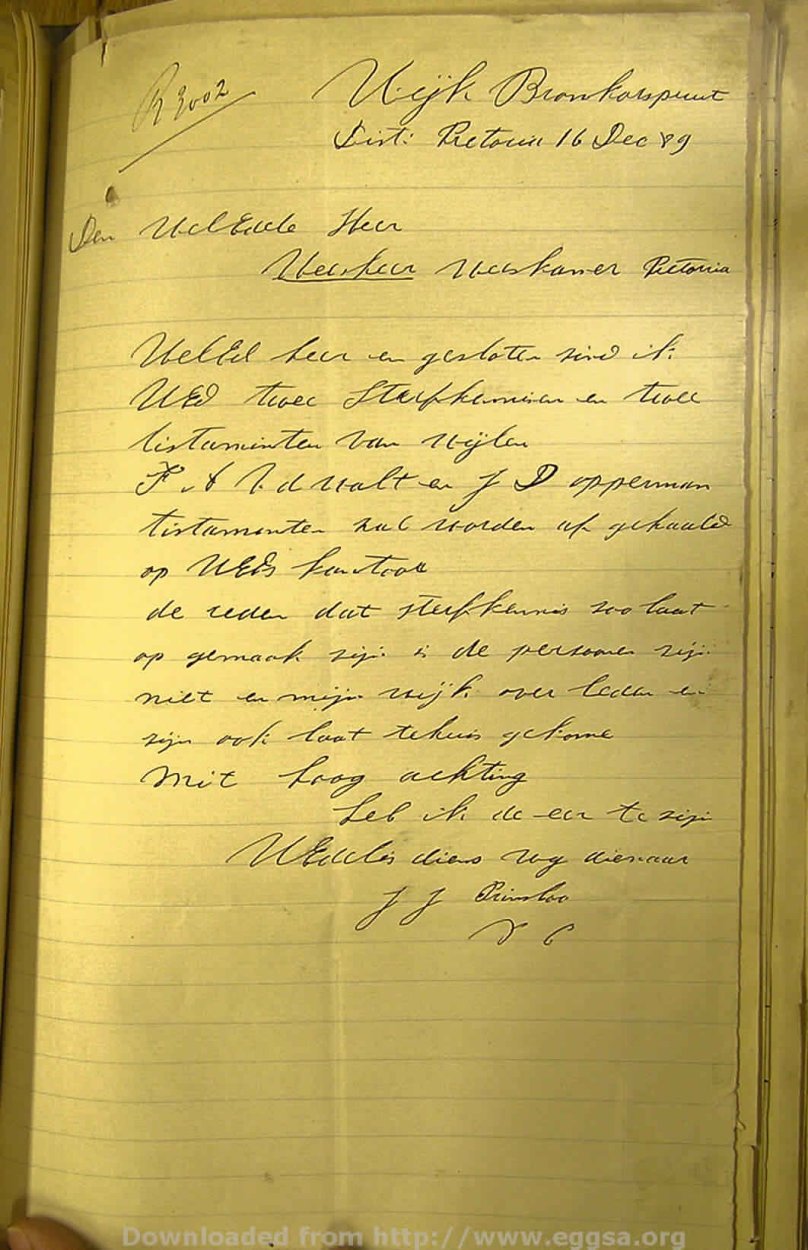 R 3002
Wijk Bronkorspruit
Dist: Pretoria 16 Dec 89
Den WelEdele Heer
Weesheer Weeskamer Pretoria
WelEd heer en gesloten sind ik
UEd twee Sterfkennisen en twee
tistaminten van wijlen
F A v d Walt en J D opperman
tistamenten zal worden af gehaald
op UEds kantoor
de reden dat sterfkennis zoo laat
op gemaak zijn is de persoonen zijn
niet en mijn wijk over leden en
zijn ook laat tehuis gekome
Mit hoog achting
heb ik de eer te zijn
UEdeles diens wg dienaar
J J Prinsloo
V C
Downloaded from http://www.eggsa.org